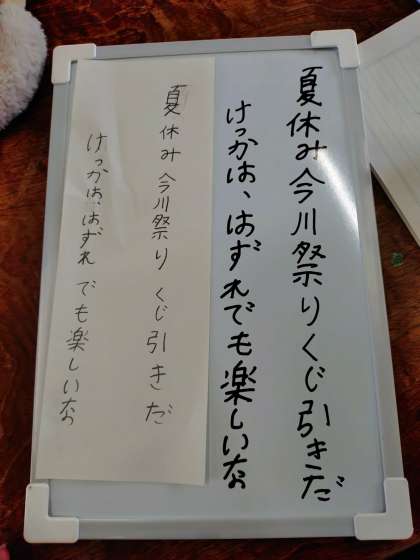 夏休み今川祭りくじ引きだ
けっかは、はずれでも楽しいな
夏休み今川祭りくじ引きだ
けっかは、はずれでも楽しいな